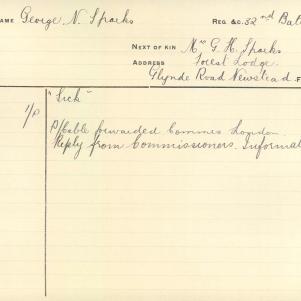 NAME George N. Sparks REG &c. 32nd Bat
NEXT OF KIN Mrs G. H. Sparks
ADDRESS Forest Lodge.
Glynde Road Newstead. F
"Sick"
P/Cable forwarded Commrs London.
Reply from Commissioners. Informat